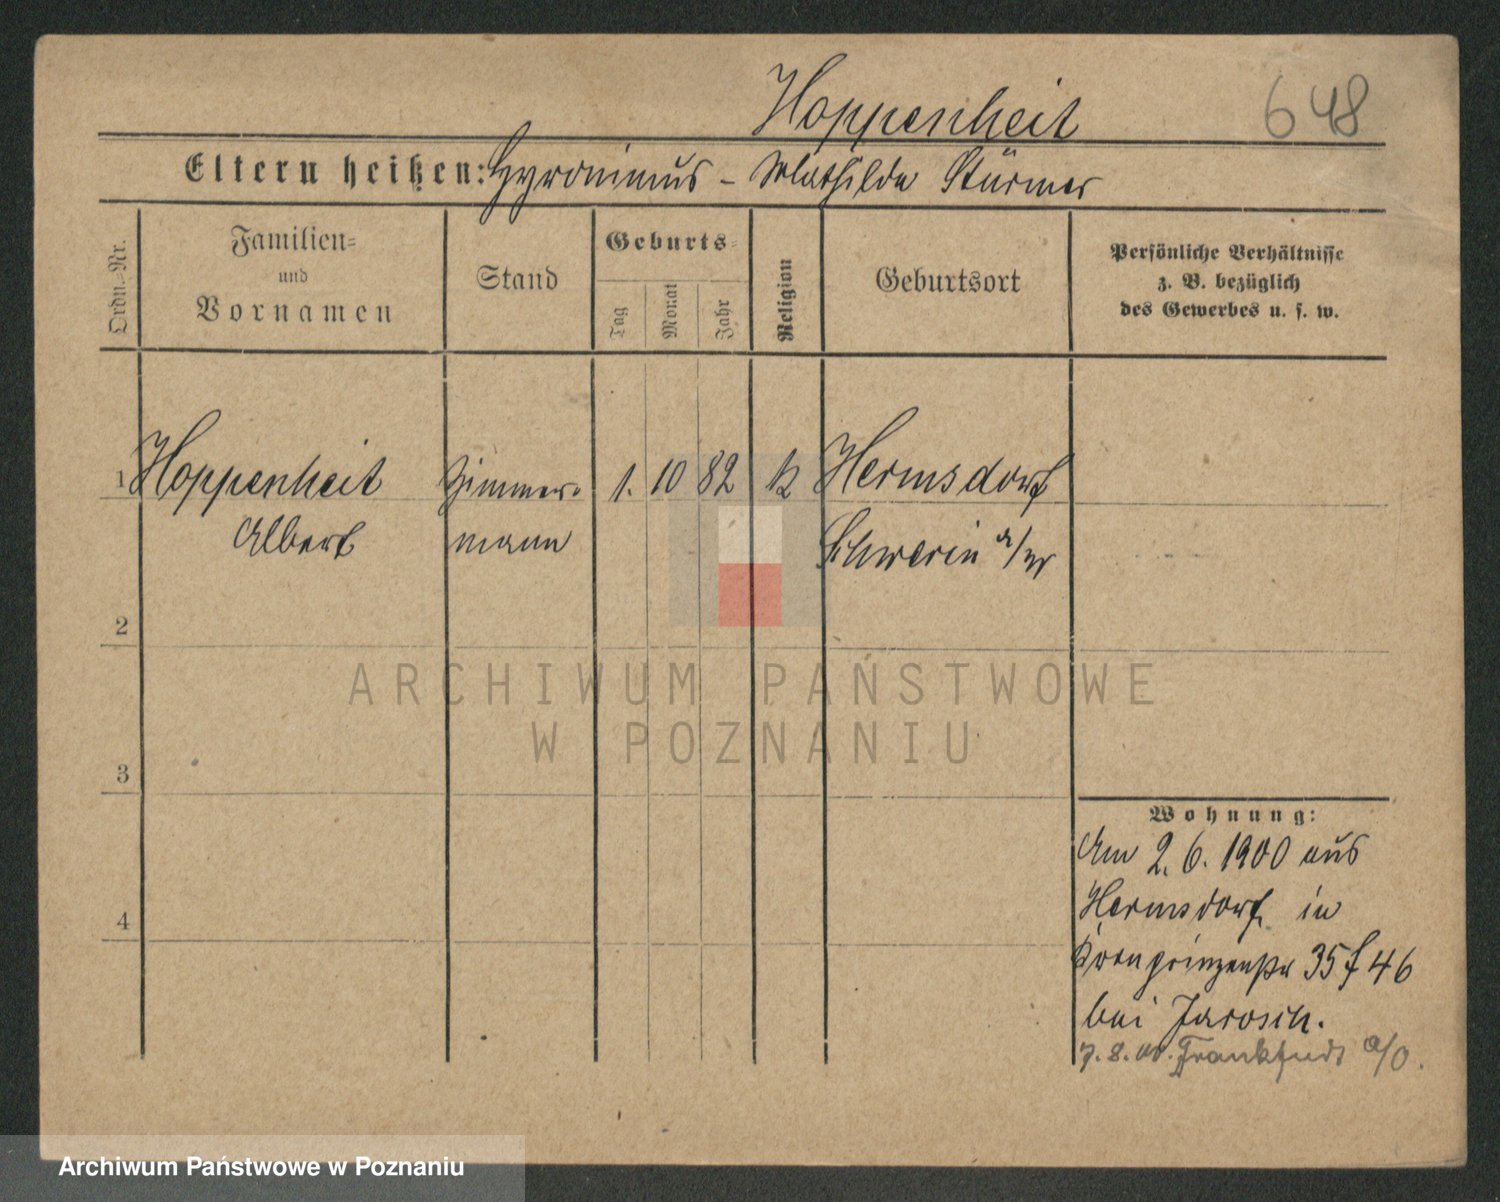 Hoppenheit
648
Eltern heißen: Hyronimus - Mathilde Stürmer
Ordn.-Nr.
Familien-
und
Vornamen
Stand
Geburts-
Tag
Monat
Jahr
Religion
Geburtsort
Persönliche Verhältnisse
z. B. bezüglich
des Gewerbes u. s. w.
1 Hoppenheit Zimmer- 1. 10 82 k Hermsdorf
Albert mann Schwerin a/W
2
3
4
Wohnung:
Am 2. 6. 1900 aus
Hermsdorf in
Kronprinzenstr 35 f 46
bei Jarosch.
7. 8. 00. Frankfurt a/O.
ARCHIWUM PAŃSTWOWE
W POZNANIU
Archiwum Państwowe w Poznaniu